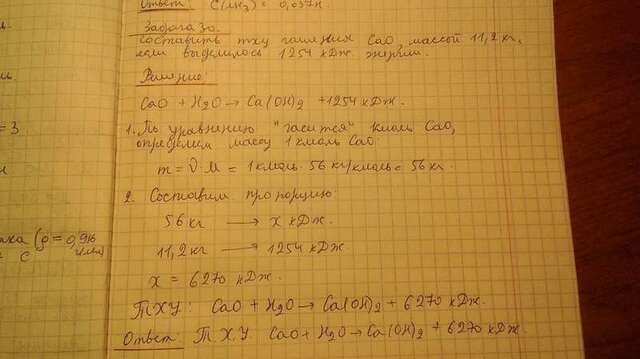 Ответ: C(NH3) = 0,037н
Задача 30.
Составить тху гашения CaO массой 11,2 кг,
если выделилось 1254 кДж энергии.
Решение:
CaO + H2O → Ca(OH)2 + 1254 кДж.
1. По уравнению "гасится" кмоль CaO,
определяем массу 1 кмоль CaO:
m = ν · M = 1 кмоль · 56 кг/кмоль = 56 кг.
= 3
2. Составим пропорцию:
56 кг → x кДж
(ρ = 0,916
г/мл)
с
11,2 кг → 1254 кДж.
x = 6270 кДж.
ТХУ: CaO + H2O → Ca(OH)2 + 6270 кДж.
Ответ: ТХУ CaO + H2O → Ca(OH)2 + 6270 кДж.